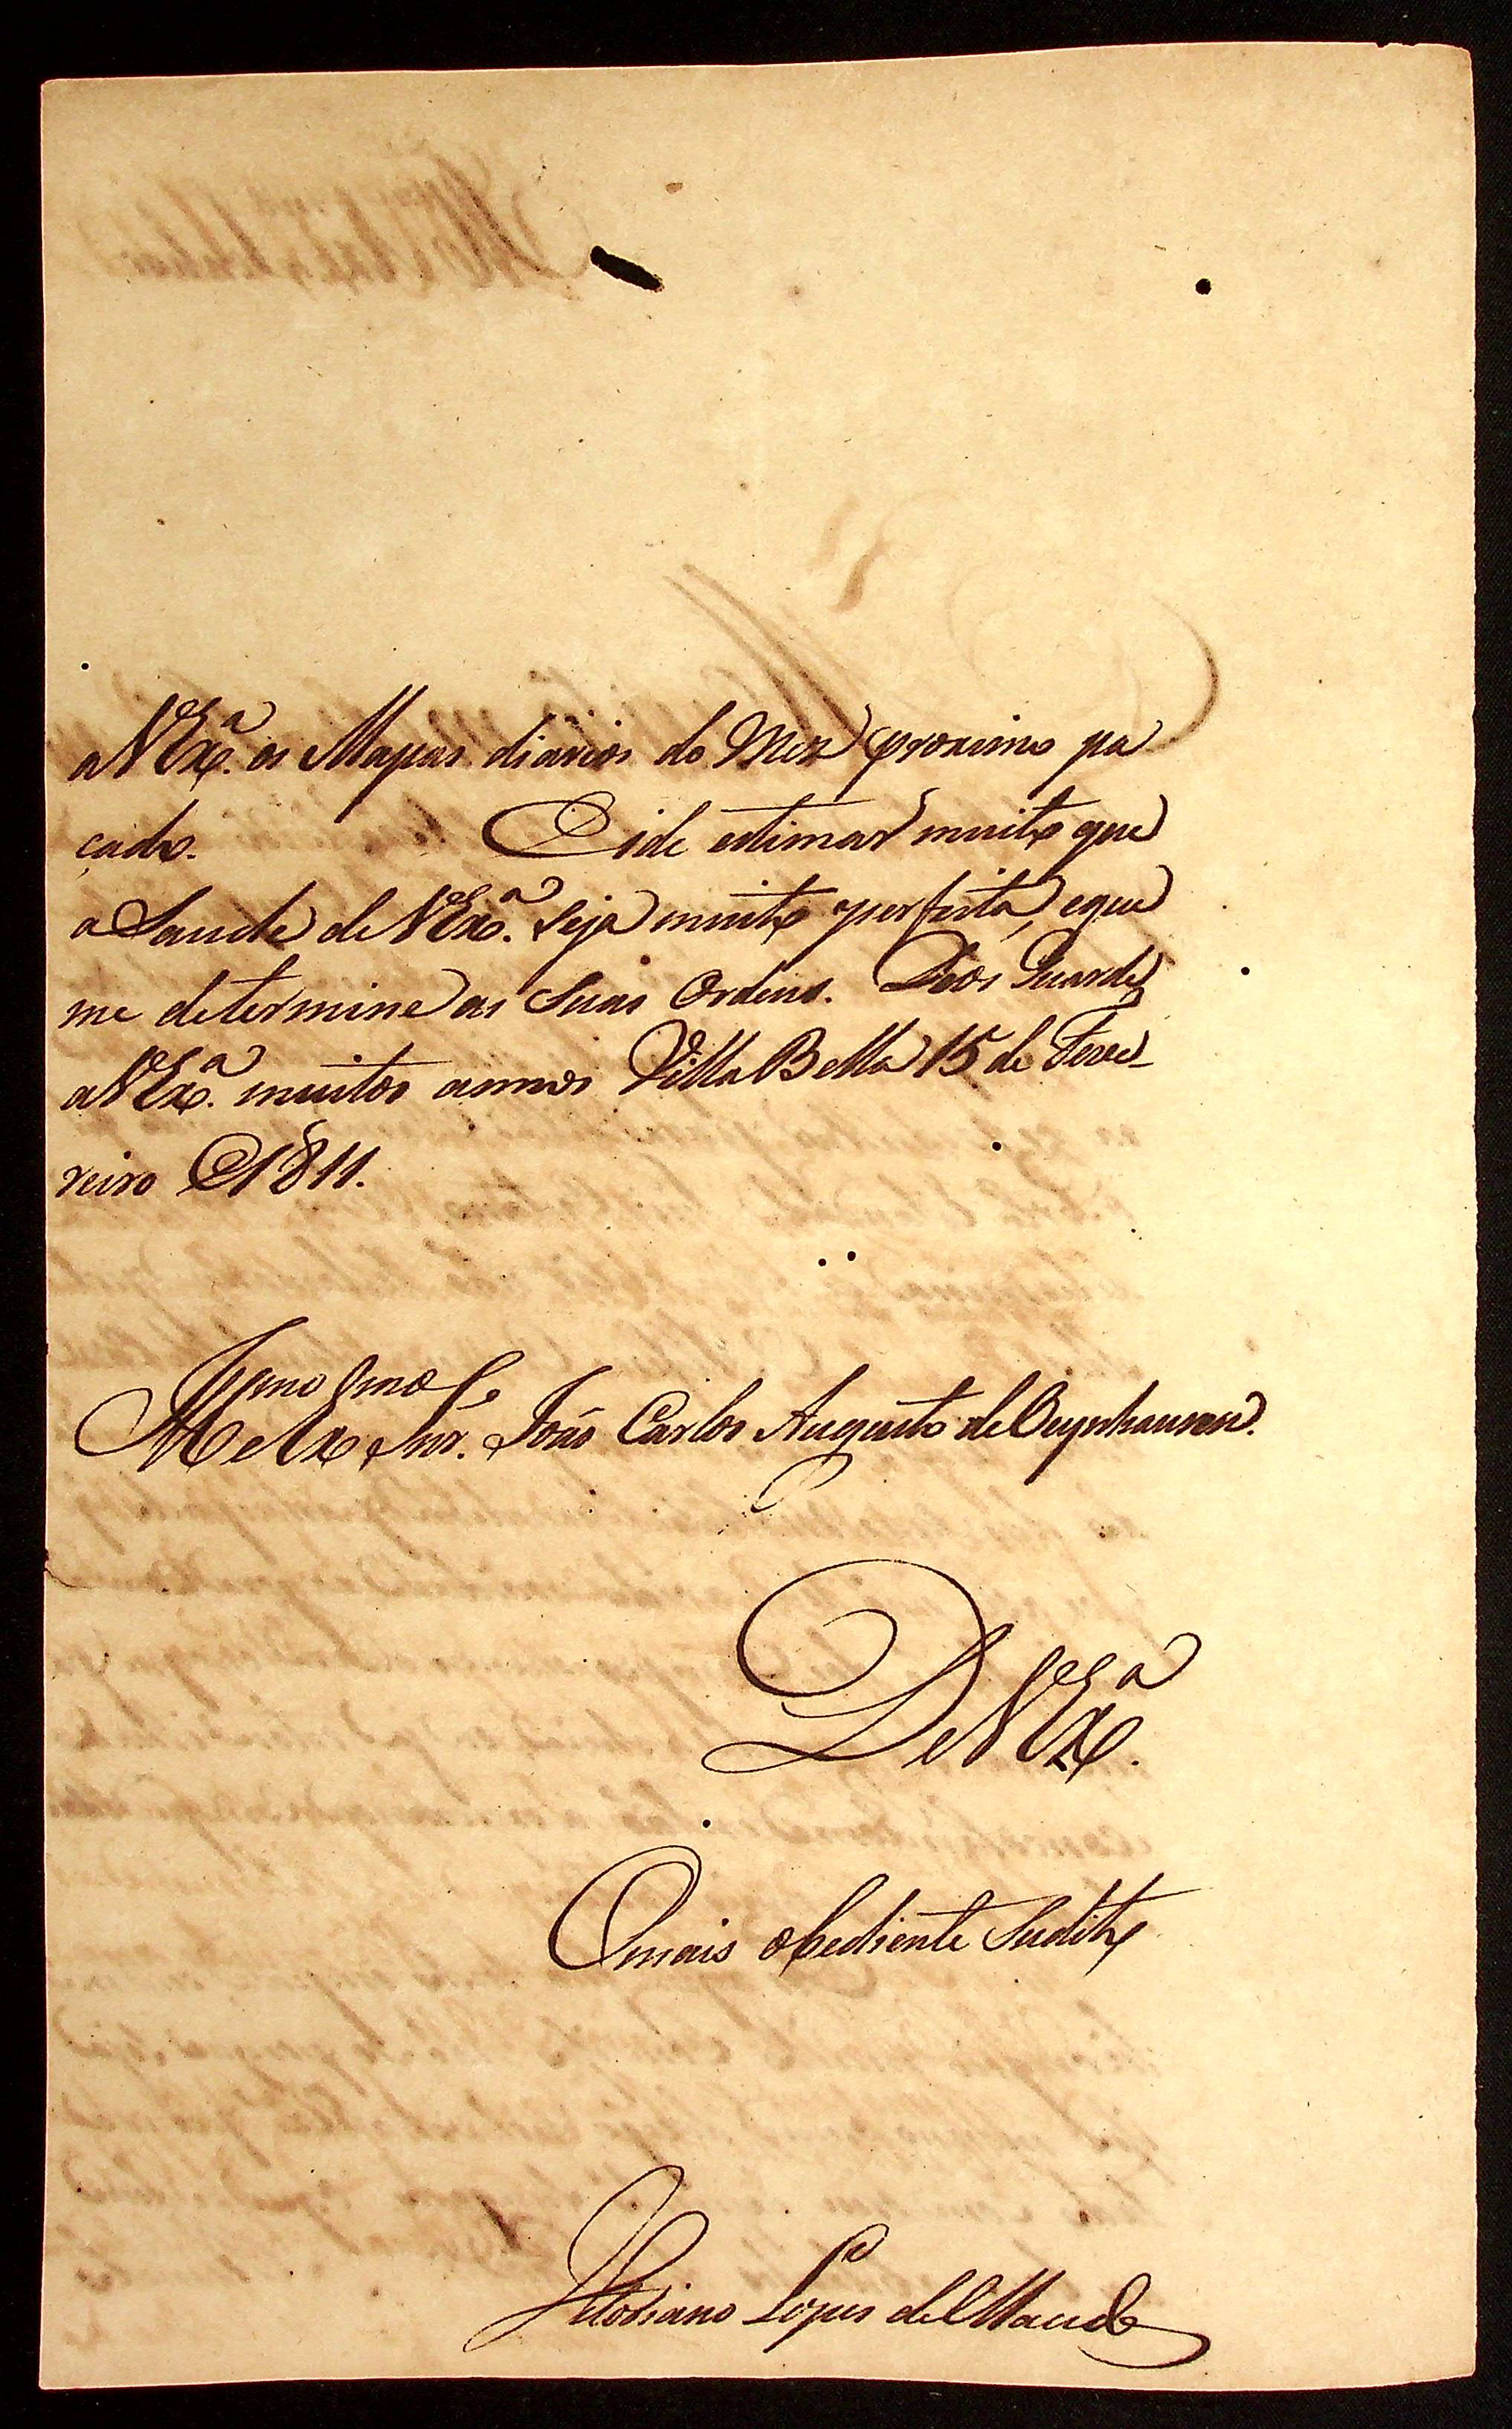 aVEx.ª os Mapas diarios do Mez proximo pa
çado. Eide estimar muito que
a Saude de VEx.ª Seja muito perfeita, eque
me determine as Suas Ordens. Deos Guarde
aVEx.ª muitos annos Villa Bella 15 de Feve-
reiro de 1811.
Illmo e Exmo Snr. João Carlos Augusto de Oeynhausen.
DeVEx.ª
Omais obediente Subdito
Victoriano Lopes de Macedo